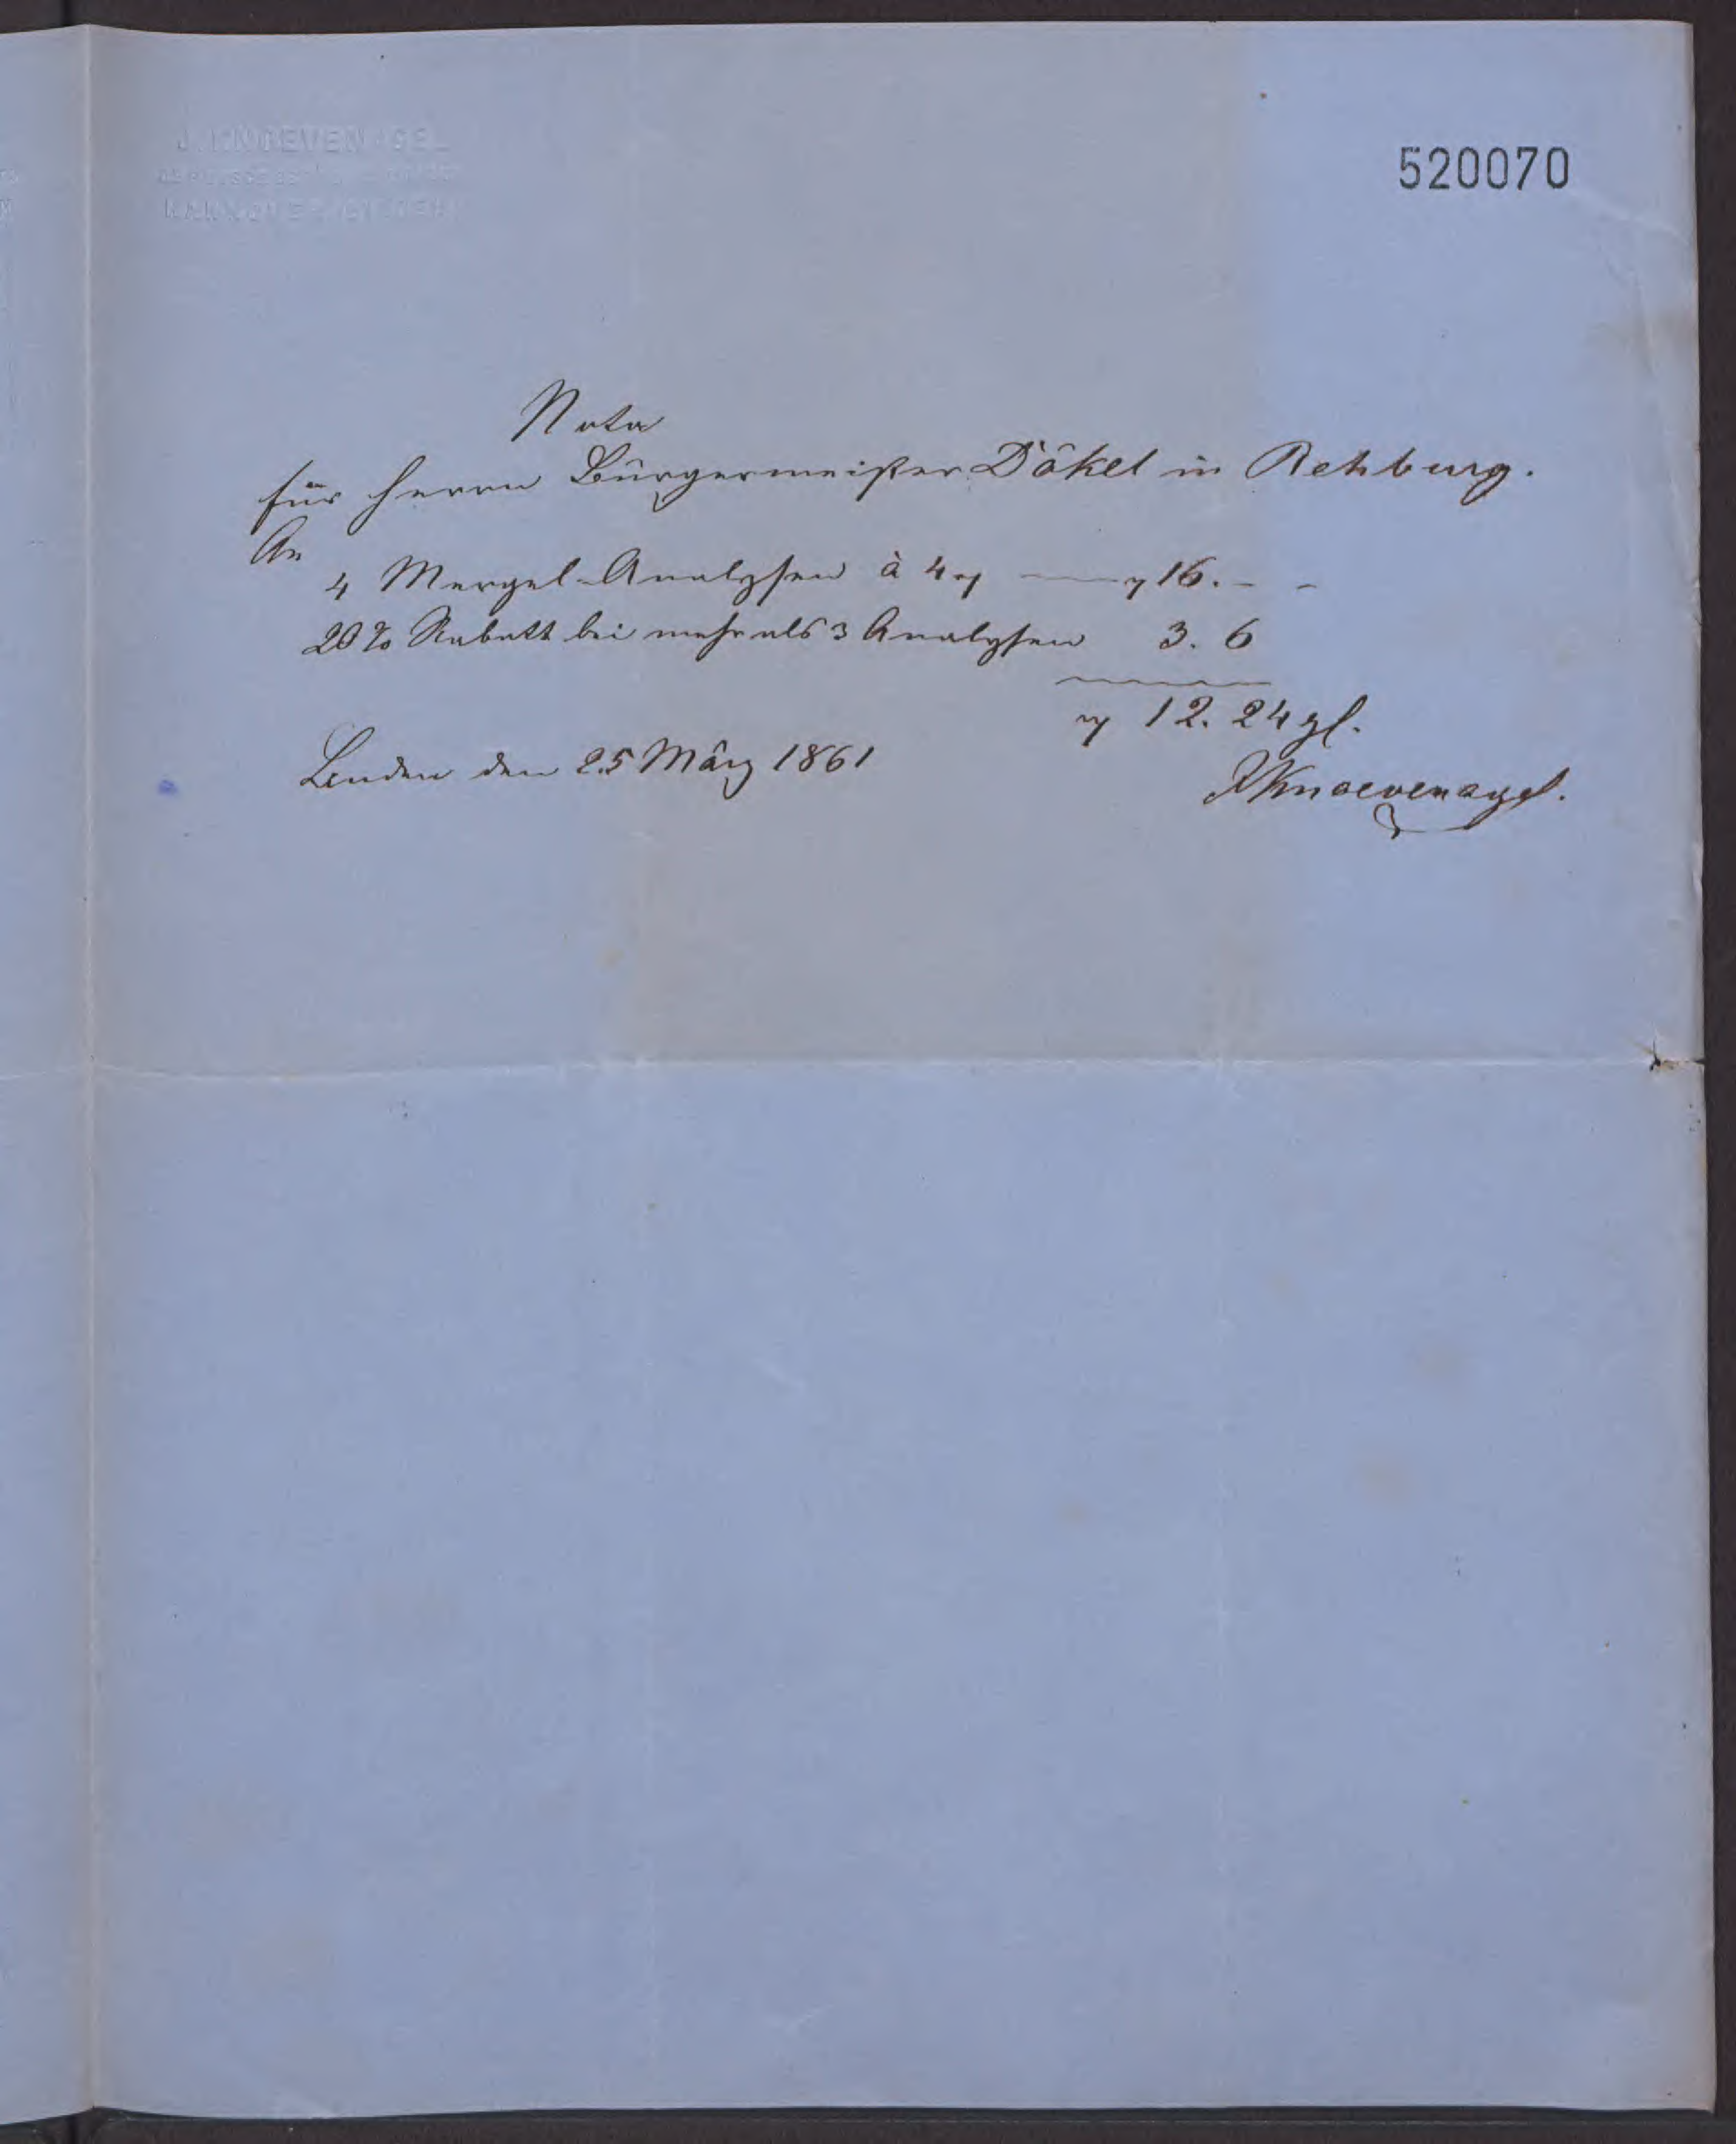 J. KNOEVENAGEL
520070
Nota
für Herrn Bürgermeister Dökel in Rehburg.
An
4 Mergel-Analysen à 4 ₰ — ₰ 16. – –
20% Rabatt bei mehr als 3 Analysen 3. 6
₰ 12. 24 gl.
Linden den 25 März 1861
JKnoevenagel.